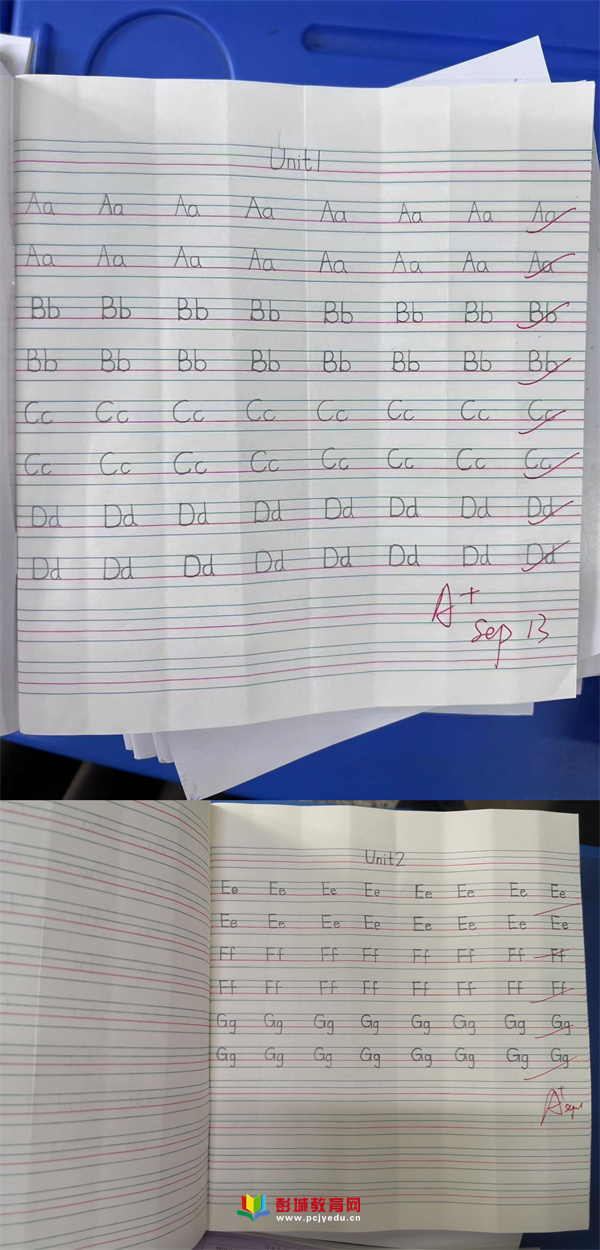 Unit 1
Aa Aa Aa Aa Aa Aa Aa Aa
Aa Aa Aa Aa Aa Aa Aa Aa
Bb Bb Bb Bb Bb Bb Bb Bb
Bb Bb Bb Bb Bb Bb Bb Bb
Cc Cc Cc Cc Cc Cc Cc Cc
Cc Cc Cc Cc Cc Cc Cc Cc
Dd Dd Dd Dd Dd Dd Dd Dd
Dd Dd Dd Dd Dd Dd Dd Dd
A+
Sep 13
Unit 2
Ee Ee Ee Ee Ee Ee Ee Ee
Ee Ee Ee Ee Ee Ee Ee Ee
Ff Ff Ff Ff Ff Ff Ff Ff
Ff Ff Ff Ff Ff Ff Ff Ff
Gg Gg Gg Gg Gg Gg Gg Gg
Gg Gg Gg Gg Gg Gg Gg Gg
A+
彭城教育网
www.pcjyedu.cn